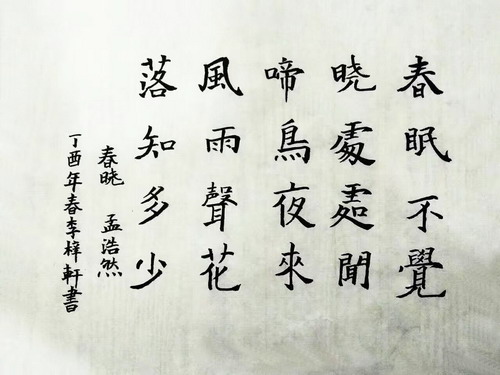 春眠不覺
晓處處聞
啼鳥夜來
風雨聲花
落知多少
春晓 孟浩然
丁酉年春李梓軒書